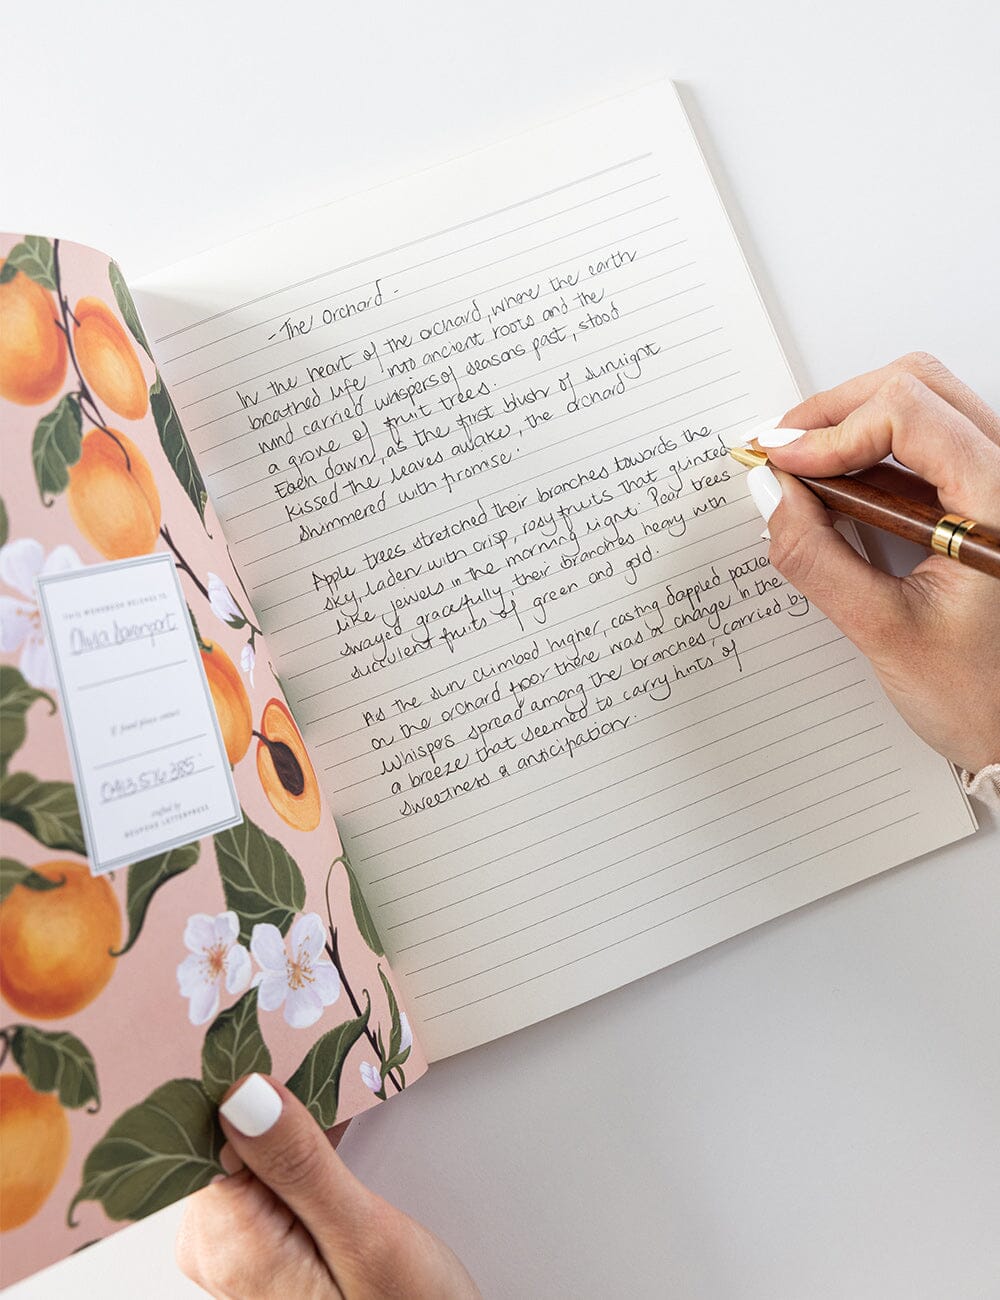 - The Orchard -
In the heart of the orchard, where the earth
breathed life into ancient roots and the
wind carried whispers of seasons past, stood
a grove of fruit trees.
Each dawn, as the first blush of sunlight
kissed the leaves awake, the orchard
shimmered with promise.
Apple trees stretched their branches towards the
sky, laden with crisp, rosy fruits that glinted
like jewels in the morning light. Pear trees
swayed gracefully, their branches heavy with
succulent fruits of green and gold.
As the sun climbed higher, casting dappled
on the orchard floor there was a change in the
Whispers spread among the branches, carried by
a breeze that seemed to carry hints of
sweetness & anticipation.
THIS WORKBOOK BELONGS TO
Olivia Davenport
If found please contact
0413 576 385
crafted by
BESPOKE LETTERPRESS